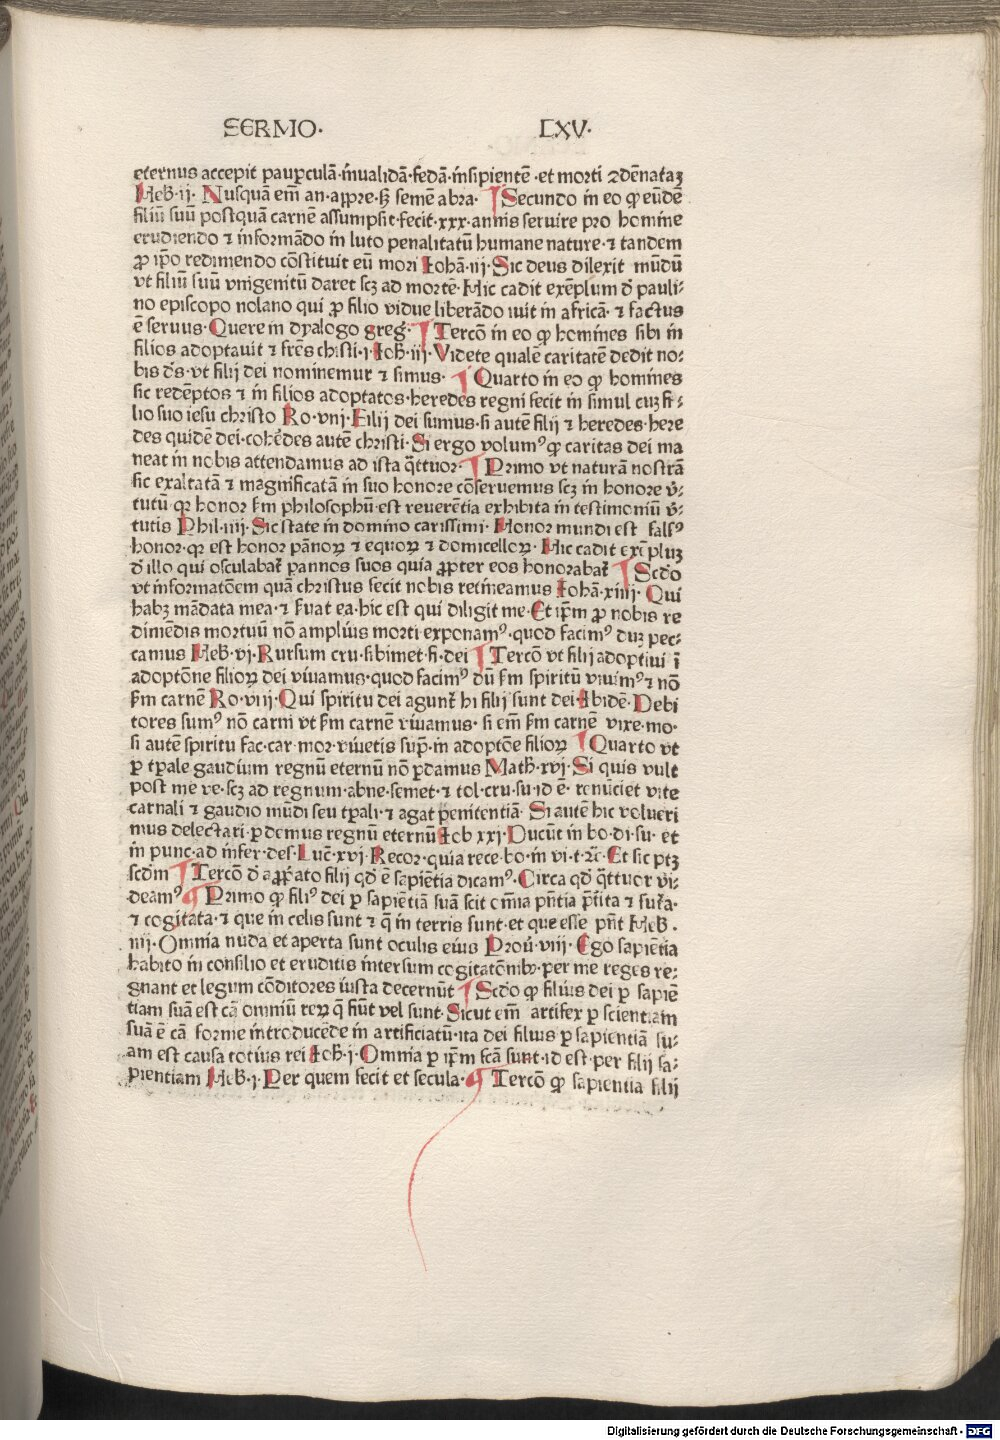 SERMO· LXV·
eternus accepit paupculā·invalidā·fedā·insipientē·et morti ꝯdēnataꝫ
Heb̄·ii· Nusquā em̄ an·appre·sꝫ semē abra· ¶ Secundo in eo ꝙ eūdē
filiū suū postquā carnē assumpsit·fecit·xxx·annis servire pro homine
erudiendo ⁊ informādo in luto penalitatū humane nature·⁊ tandem
ꝓ ip̄o redimendo cōstituit eū mori Iohā·iij·Sic deus dilexit mūdū
vt filiū suū vnigenitū daret scꝫ ad mortē·Hic cadit exēplum d̄ pauli⸗
no episcopo nolano qui ꝓ filio vidue liberādo iuit in africā·⁊ factus
ē servus·Quere in dyalogo greg̅·¶ Tercō in eo ꝙ homines sibi in
filios adoptavit ⁊ frēs christi·j·Ioh̄·iij·Videte qualē caritatē dedit no⸗
bis d̄s·vt filij dei nominemur ⁊ simus· ¶ Quarto in eo ꝙ homines
sic redēptos ⁊ in filios adoptatos·heredes regni fecit in simul cuꝫ fi⸗
lio suo iesu christo Ro·viij·Filij dei sumus·si autē filij ⁊ heredes·here
des quidē dei·cohēdes autē christi·Si ergo volumꝰ ꝙ caritas dei ma
neat in nobis attendamus ad ista q̄ttuor·¶ Primo vt naturā nostrā
sic exaltatā ⁊ magnificatā in suo honore cōservemus scꝫ in honore v̄⸗
tutū qr honor scd̄m philosophū·est reverētia exhibita in testimoniū v̄⸗
tutis Phil·iiij·Sic state in domino carissimi·Honor mundi est falsꝰ
honor·qr est honor pānoꝝ ⁊ equoꝝ ⁊ domicelloꝝ·Hic cadit exēpluꝫ
d̄ illo qui osculabat̄ pannos suos quia ꝓpter eos honorabat̄ ¶ Scd̄o
vt informatōem quā christus fecit nobis retineamus Iohā·xiiij·Qui
habꝫ mādata mea·⁊ s̄uat ea·hic est qui diligit me·Et ip̄m ꝓ nobis re
dimēdis mortuū nō amplius morti exponamꝰ·quod facimꝰ duꝫ pec⸗
camus Heb̄·vj·Rursum cru·sibimet·fi·dei ¶ Tercō vt filij adoptivi ī
adoptōne filioꝝ dei vivamus·quod facimꝰ dū scd̄m spiritū vivimꝰ ⁊ nō
scd̄m carnē Ro·viij·Qui spiritu dei agunt̄ hi filij sunt dei·Ibidē·Debi
tores sumꝰ nō carni vt scd̄m carnē vivamus·si em̄ scd̄m carnē vixe·mo·
si autē spiritu fac·car·mor·vivetis sup̄·in adoptōe filioꝝ ¶ Quarto vt
ꝑ tꝑale gaudium regnū eternū nō ꝑdamus Math̄·xvj·Si quis vult
post me ve·scꝫ ad regnum·abne·semet·⁊ tol·cru·su·id ē· renūciet vite
carnali ⁊ gaudio mūdi seu tꝑali·⁊ agat penitentiā· Si autē hic volueri
mus delectari·ꝑdemus regnū eternū Iob xxj·Ducūt in bo·di·su· et
in punc·ad infer·des·Luc̄·xvj·Recor·quia rece·bo·in vi·t·⁊c̄·Et sic ptꝫ
scd̄m ¶ Tercō d̄ apꝓp̄ato filij qd̄ ē sapiētia dicamꝰ·Circa qd̄ q̄ttuor vi⸗
deamꝰ ¶ Primo ꝙ filiꝰ dei ꝑ sapiētiā suā scit om̄ia pn̄tia p̄tita ⁊ fut̄a·
⁊ cogitata·⁊ que in celis sunt ⁊ q̄ in terris sunt·et que esse pn̄t Heb̄·
iiij·Omnia nuda et aperta sunt oculis eius Prov̄·viij·Ego sapiētia
habito in consilio et eruditis intersum cogitatōnibꝫ·per me reges re⸗
gnant et legum cōditores iusta decernūt ¶ Scd̄o ꝙ filius dei ꝑ sapiē
tiam suā est cā omniū reꝝ q̄ fiūt vel sunt·Sicut em̄ artifex ꝑ scientiam
suā ē cā forme introducēde in artificiatū·ita dei filius ꝑ sapientiā su⸗
am est causa totius rei Ioh̄·j·Omnia ꝑ ip̄m fcā sunt·id est·per filij sa⸗
pientiam Heb̄·j·Per quem fecit et secula·¶ Tercō ꝙ sapientia filij
Digitalisierung gefördert durch die Deutsche Forschungsgemeinschaft - DFG